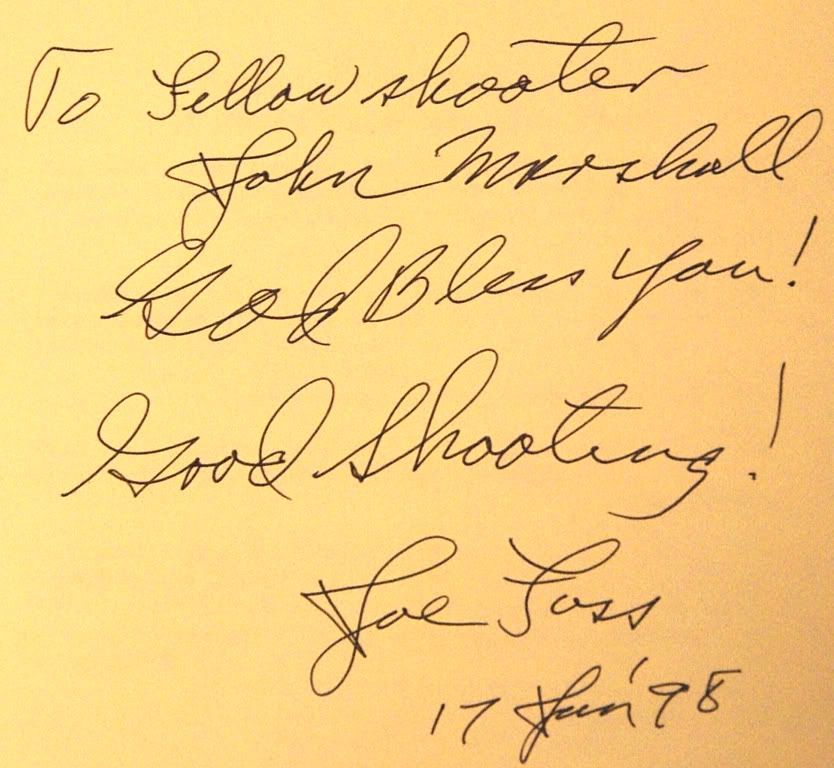 To Fellow shooter
John Marshall
God Bless You!
Good Shooting!
Joe Foss
17 Jun '98